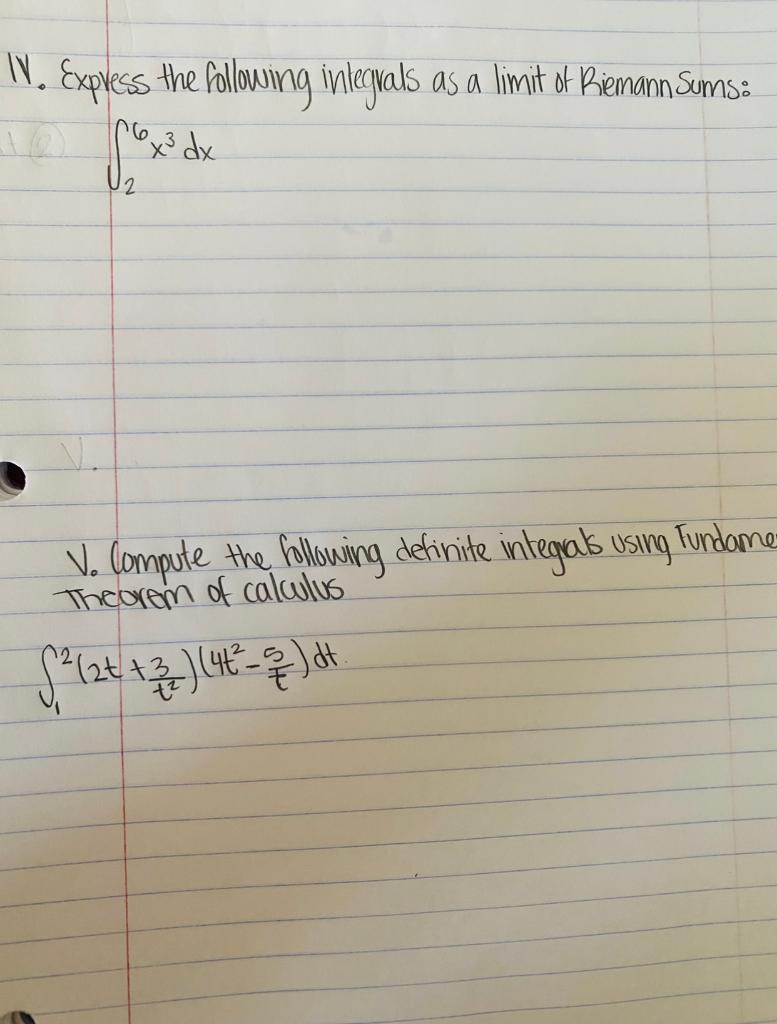 IV. Express the following integrals as a limit of Riemann Sums:
∫₂⁶ x³ dx
V.
V. Compute the following definite integrals using Fundame
Theorem of calculus
∫₁² (2t + 3/t²)(4t² - 5/t) dt